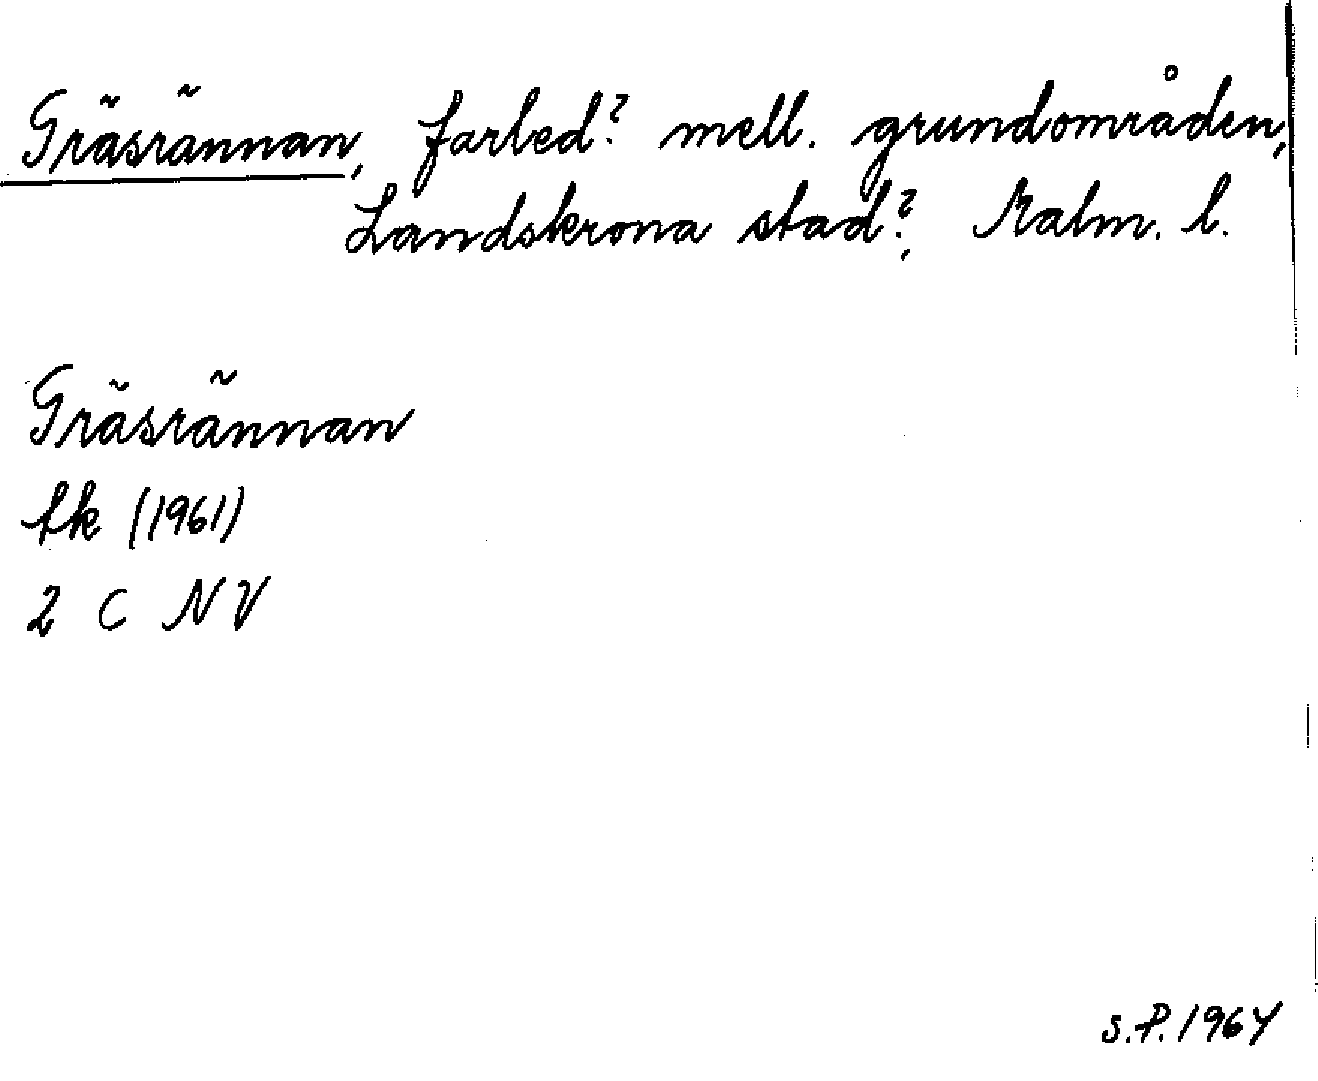 Gräsrännan, farled? mell. grundområden,
Landskrona stad?, Malm. l.
Gräsrännan
fk (1961)
2 C NV
S.P. 1964